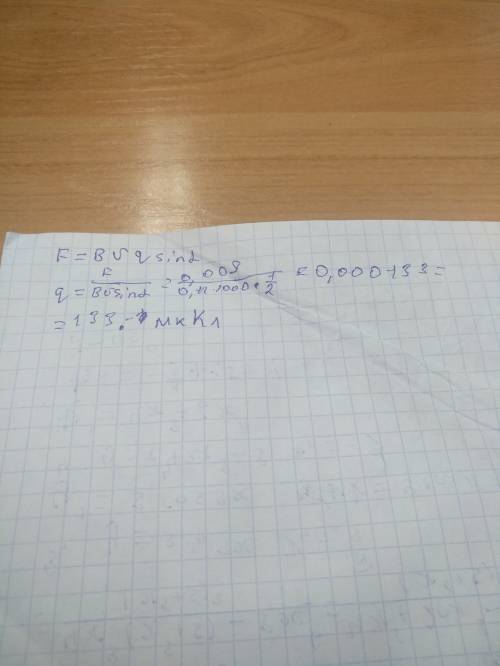 F = B υ q sin α
q = F / B υ sin α = 0,009 / 0,1 · 1000 · 1/2 = 0,000133 =
= 133 мкКл